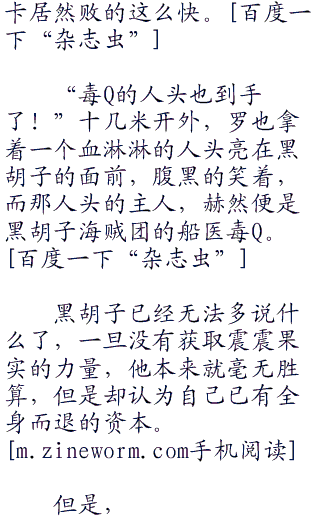 卡居然败的这么快。[百度一
下“杂志虫”]
“毒Q的人头也到手
了！”十几米开外，罗也拿
着一个血淋淋的人头亮在黑
胡子的面前，腹黑的笑着，
而那人头的主人，赫然便是
黑胡子海贼团的船医毒Q。
[百度一下“杂志虫”]
黑胡子已经无法多说什
么了，一旦没有获取震震果
实的力量，他本来就毫无胜
算，但是却认为自己已有全
身而退的资本。
[m.zineworm.com手机阅读]
但是，